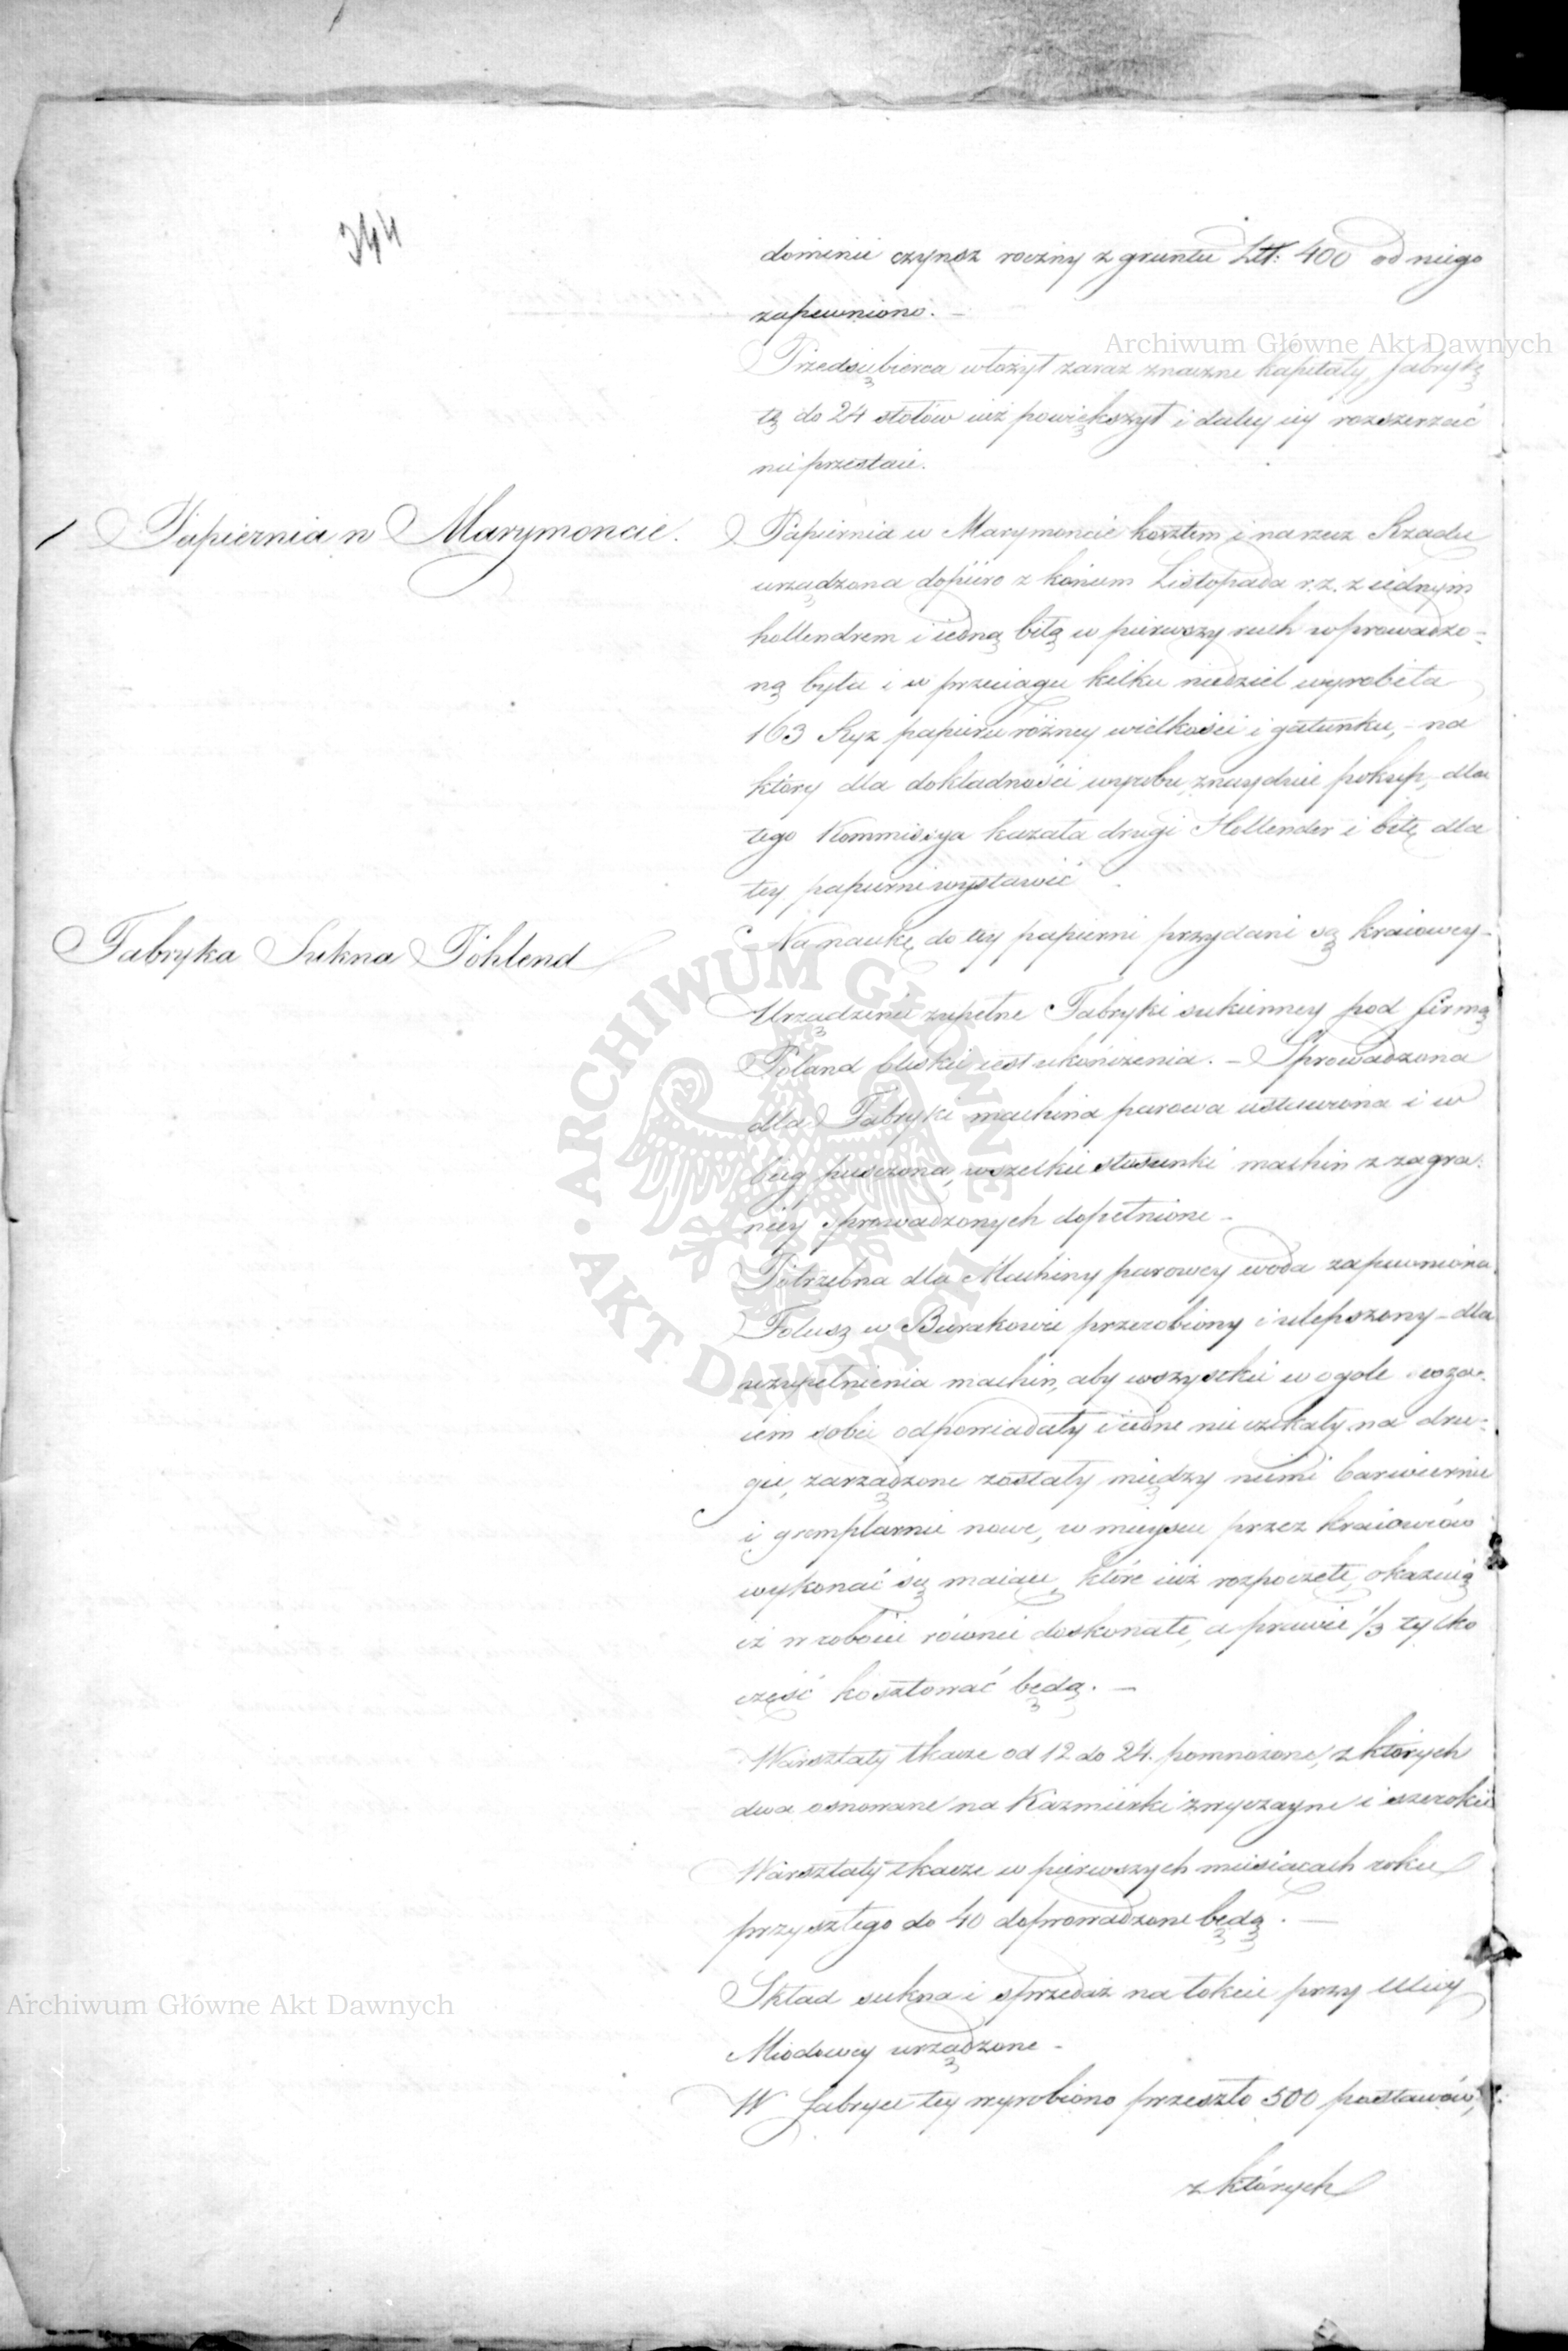 344
dominii czynsz roczny z gruntu Ztt: 400 od niego
zapewniono. —
Archiwum Główne Akt Dawnych
Przedsiębierca włożył zaraz znaczne kapitały, fabrykę
tę do 24 stołów iuż powiększył i daley iey rozszerzać
nie przestaie.
Papiernia w Marymoncie.
Papiernia w Marymoncie kosztem i na rzecz Rządu
urządzona dopiero z końcem Listopada r. z. z iednym
hollendrem i iedną bitą w pierwszy ruch wprowadzo-
ną była i w przeciągu kilku niedziel wyrobiła
163 Ryz papieru różney wielkości i gatunku, – na
który dla dokładności wyrobu, znayduie pokup, – dla
tego Kommissya kazała drugi Hollender i bitę dla
tey papierni wystawić
Na naukę do tey papierni przydani są kraiowcy –
Fabryka Sukna Pöhlend
Urządzenie zupełne Fabryki sukienney pod firmą
Poland bliskie iest ukończenia. – Sprowadzona
dla Fabryki machina parowa ustawiona i w
bieg puszczona, wszelkie stosunki machin z zagra-
nicy sprowadzonych dopełnione –
Potrzebna dla Machiny parowey woda zapewniona.
Folusz w Burakowie przerobiony i ulepszony – dla
uzupełnienia machin, aby wszystkie w ogóle
iem sobie odpowiadały i iedne nie czekały na dru-
gie, zarządzone zostały między niemi barwiernie
i gremplarnie nowe, w mieyscu przez kraiowców
wykonać się maiące, które iuż rozpoczęte, okazuią
iż w robocie równie doskonałe, a prawie 1/3 tylko
część kosztować będą. —
Warsztaty tkacze od 12 do 24. pomnożone, z których
dwa osnowane na Kazmierki zwyczayne i szerokie
Warsztaty tkacze w pierwszych miesiącach roku
przyszłego do 40 doprowadzone będą. —
Skład sukna i sprzedaż na łokcie przy Ulicy
Archiwum Główne Akt Dawnych
Miodowey urządzone –
W fabryce tey wyrobiono przeszło 500 postawów,
z których
ARCHIWUM GŁÓWNE AKT DAWNYCH